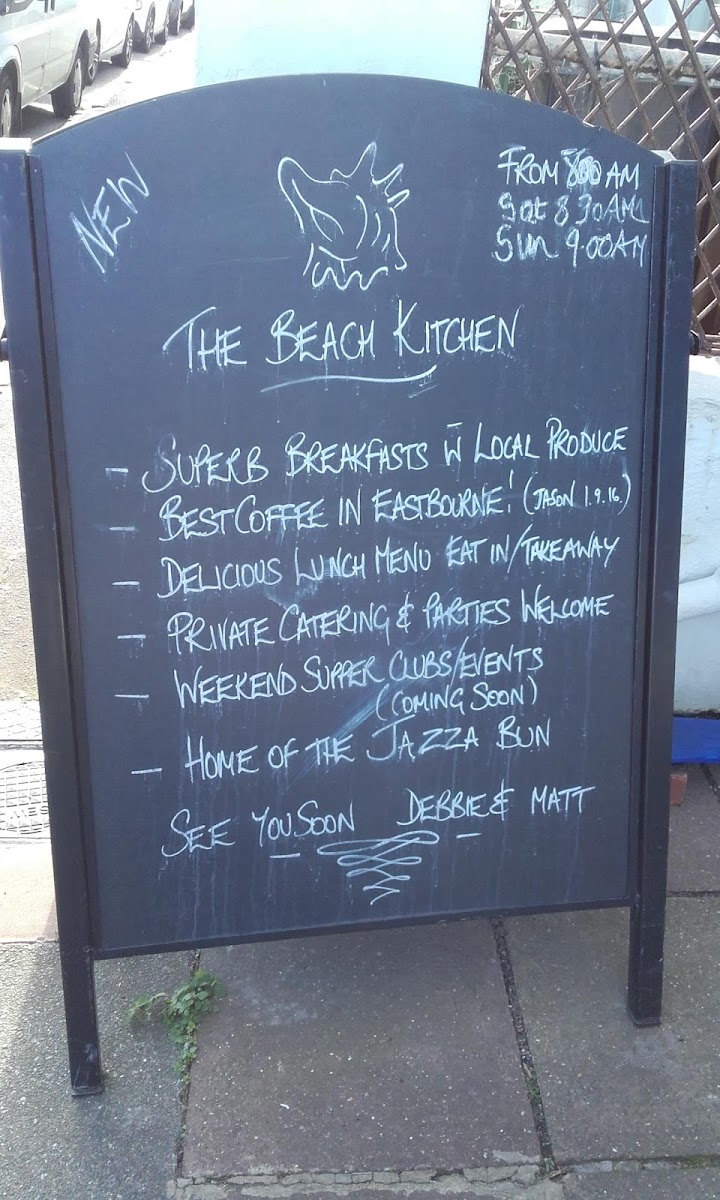 NEW
FROM 800 AM
Sat 8 30AM
Sun 9.00AM
THE BEACH KITCHEN
- SUPERB BREAKFASTS W̄ LOCAL PRODUCE
- BEST COFFEE IN EASTBOURNE! (JASON 1.9.16.)
- DELICIOUS LUNCH MENU EAT IN/TAKEAWAY
- PRIVATE CATERING & PARTIES WELCOME
- WEEKEND SUPPER CLUBS/EVENTS
(COMING SOON)
- HOME OF THE JAZZA BUN
SEE YOU SOON DEBBIE & MATT